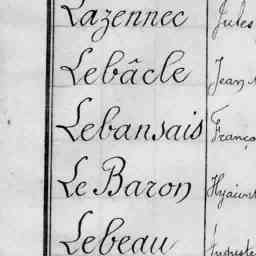 Lazennec Jules
Lebâcle Jean
Lebansais Franço
Le Baron Hyacint
Lebeau Auguste